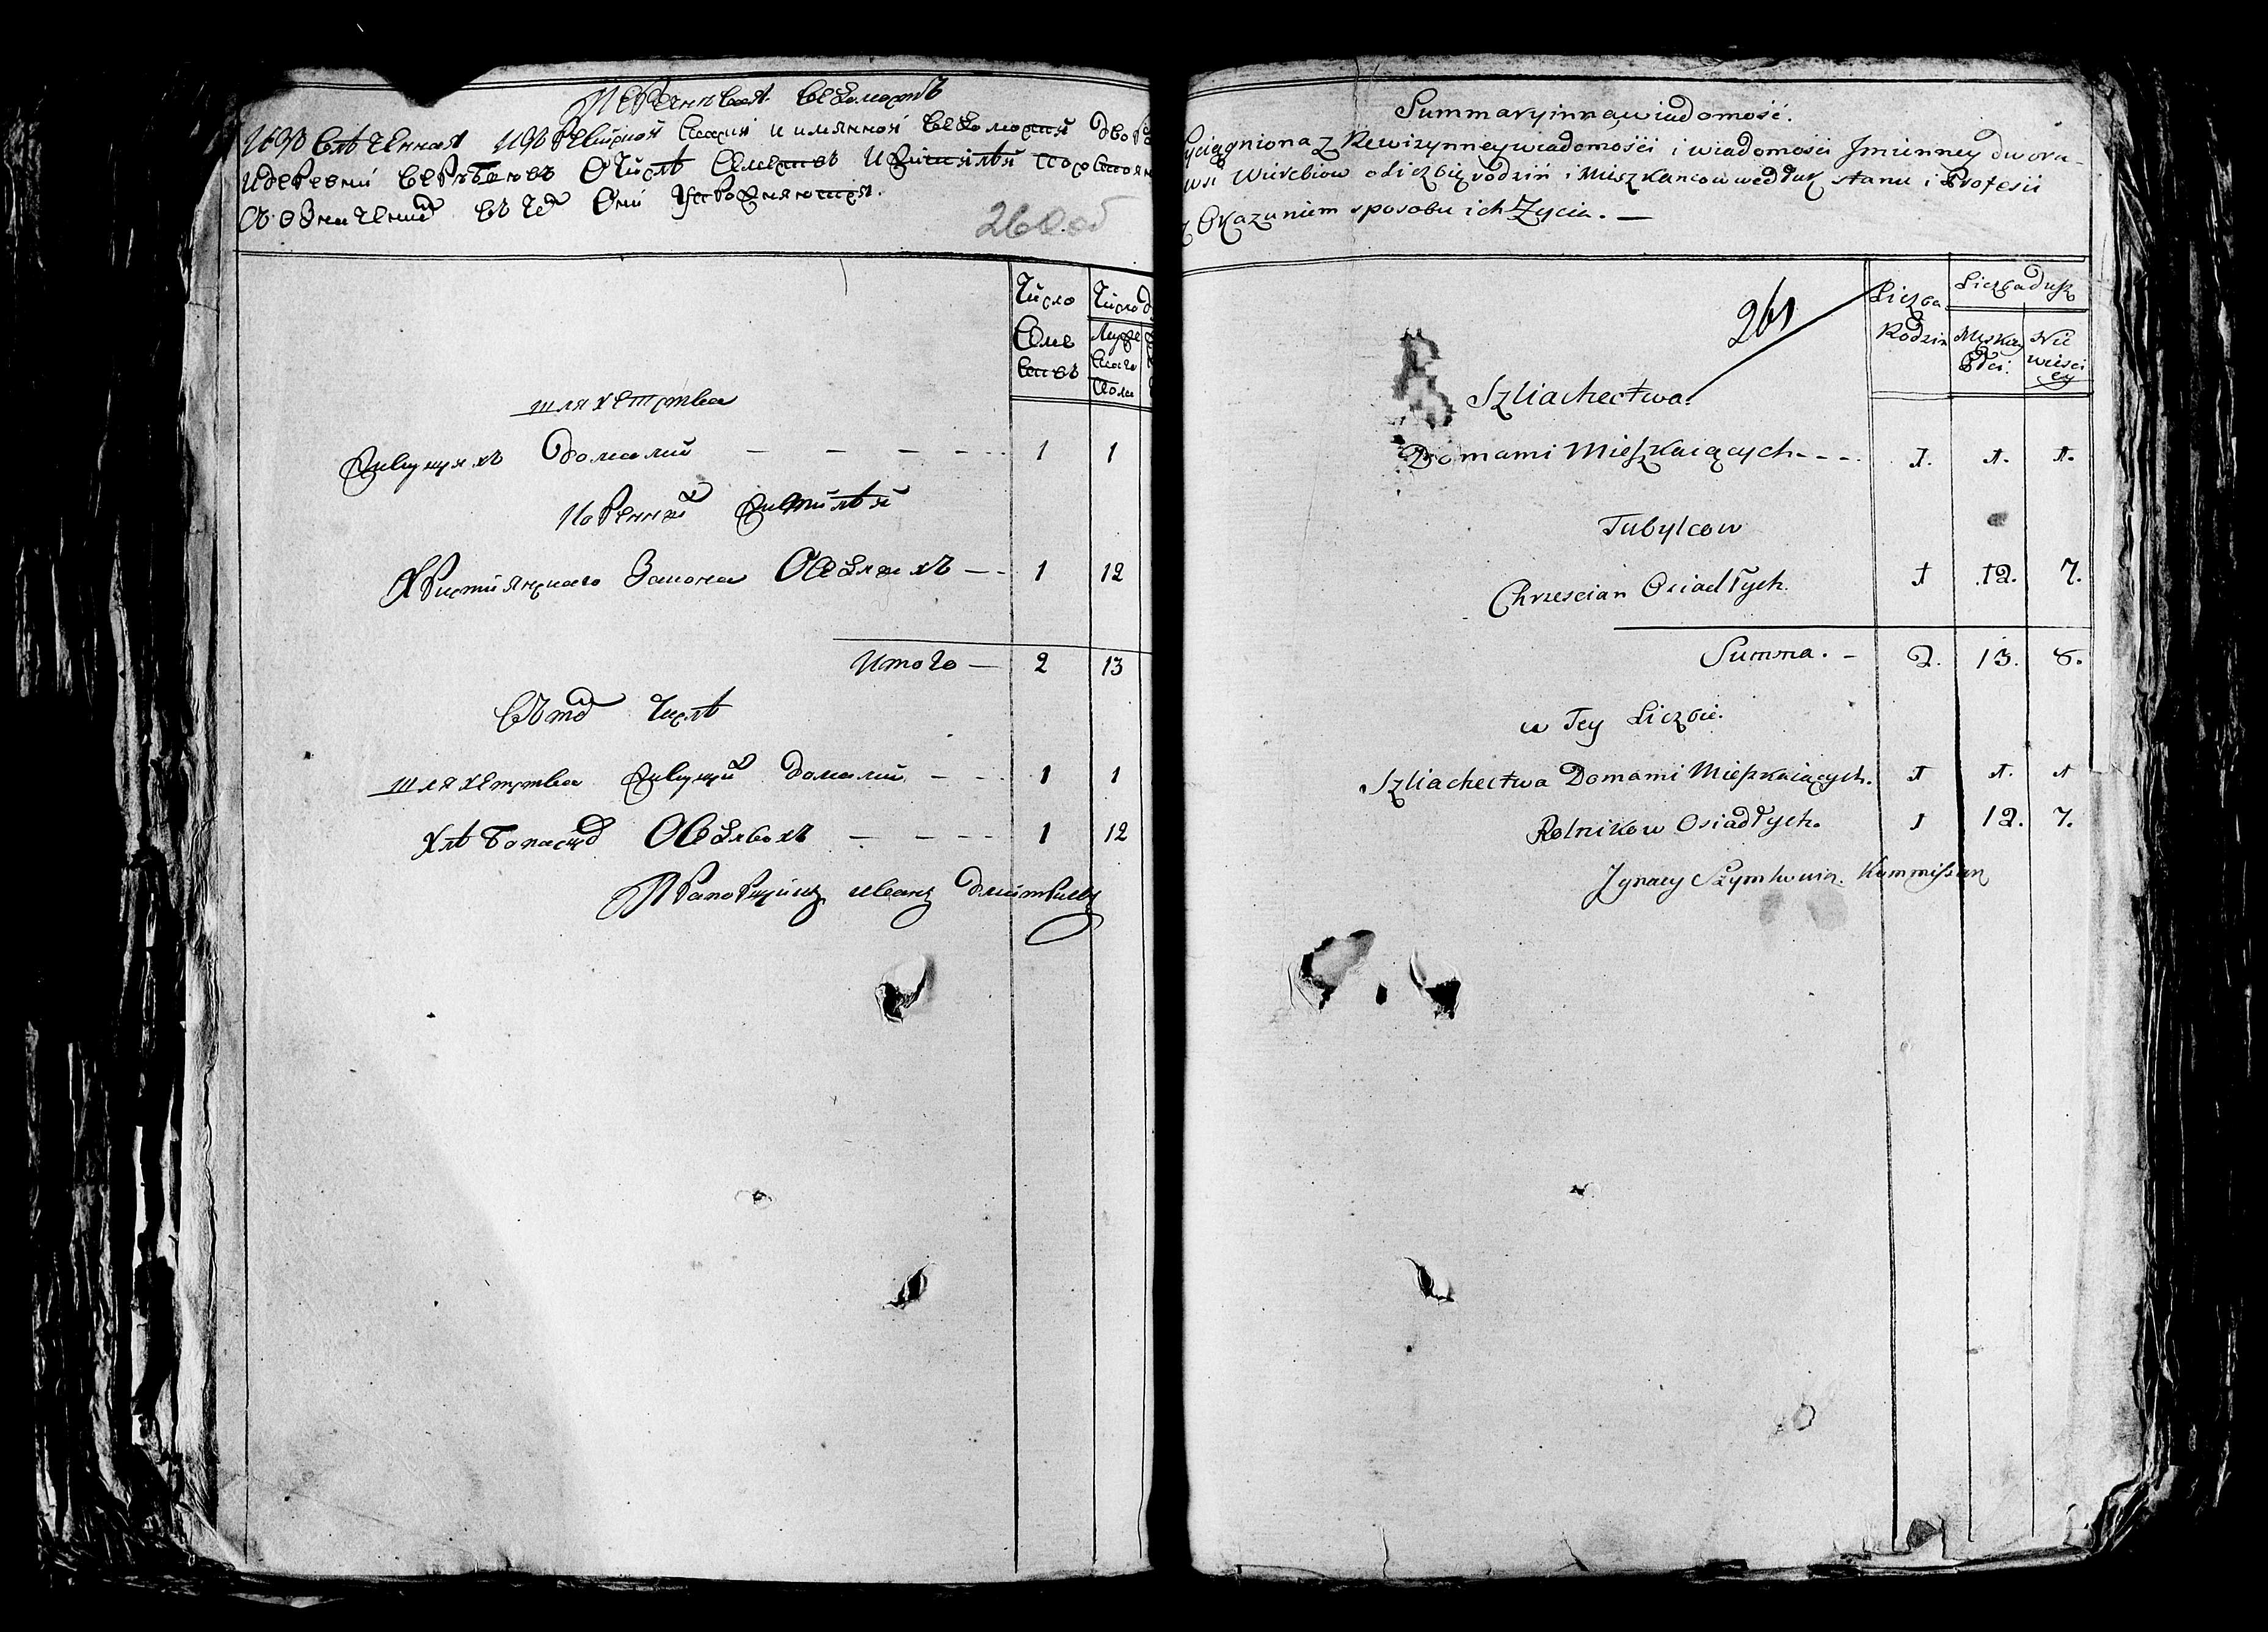 Перечневая ведомость
Извлеченная изъ ревизской скаски и имянной ведомости двора
и деревни вербковъ о числѣ семействъ и жителей по состоянию
съ означениемъ въ чемъ они упражняются.
260 об
Число
Семействъ
Число д
Мужескаго
Пола
шляхетства
живущихъ домами — — — —
1 1
коренныхъ жителей
Християнскаго Закона Оседлыхъ —
1 12
Итого —
2 13
Въ томъ числѣ
шляхетства живущихъ домами — —
1 1
Хлѣбопашцовъ Оседлыхъ — — —
1 12
Прапорщикъ иванъ дмитриевъ
Summaryinna wiadomość.
yciągniona z Rewizynney wiadomośći i wiadomości Jmienney dwora
wsi Wierzbiow o liczbię rodziń i Mieszkancow wedłuk stanu i Profesii
z Okazaniem sposobu ich Zycia. —
261
Liczba
Rodzin
Liczba dusz
Męskiey
Płci.
Nie
wiesci
ey
Szliachectwa.
Domami Mieszkaiących - - -
1. 1. 1.
Tubylcow
Chrzescian Osiadłych.
1 12. 7.
Summa. -
2. 13. 8.
w Tey Liczbie.
Szliachectwa Domami Mieszkaiących.
1 1. 1
Rolnikow Osiadłych.
1 12. 7.
Jgnacy Kommissarz